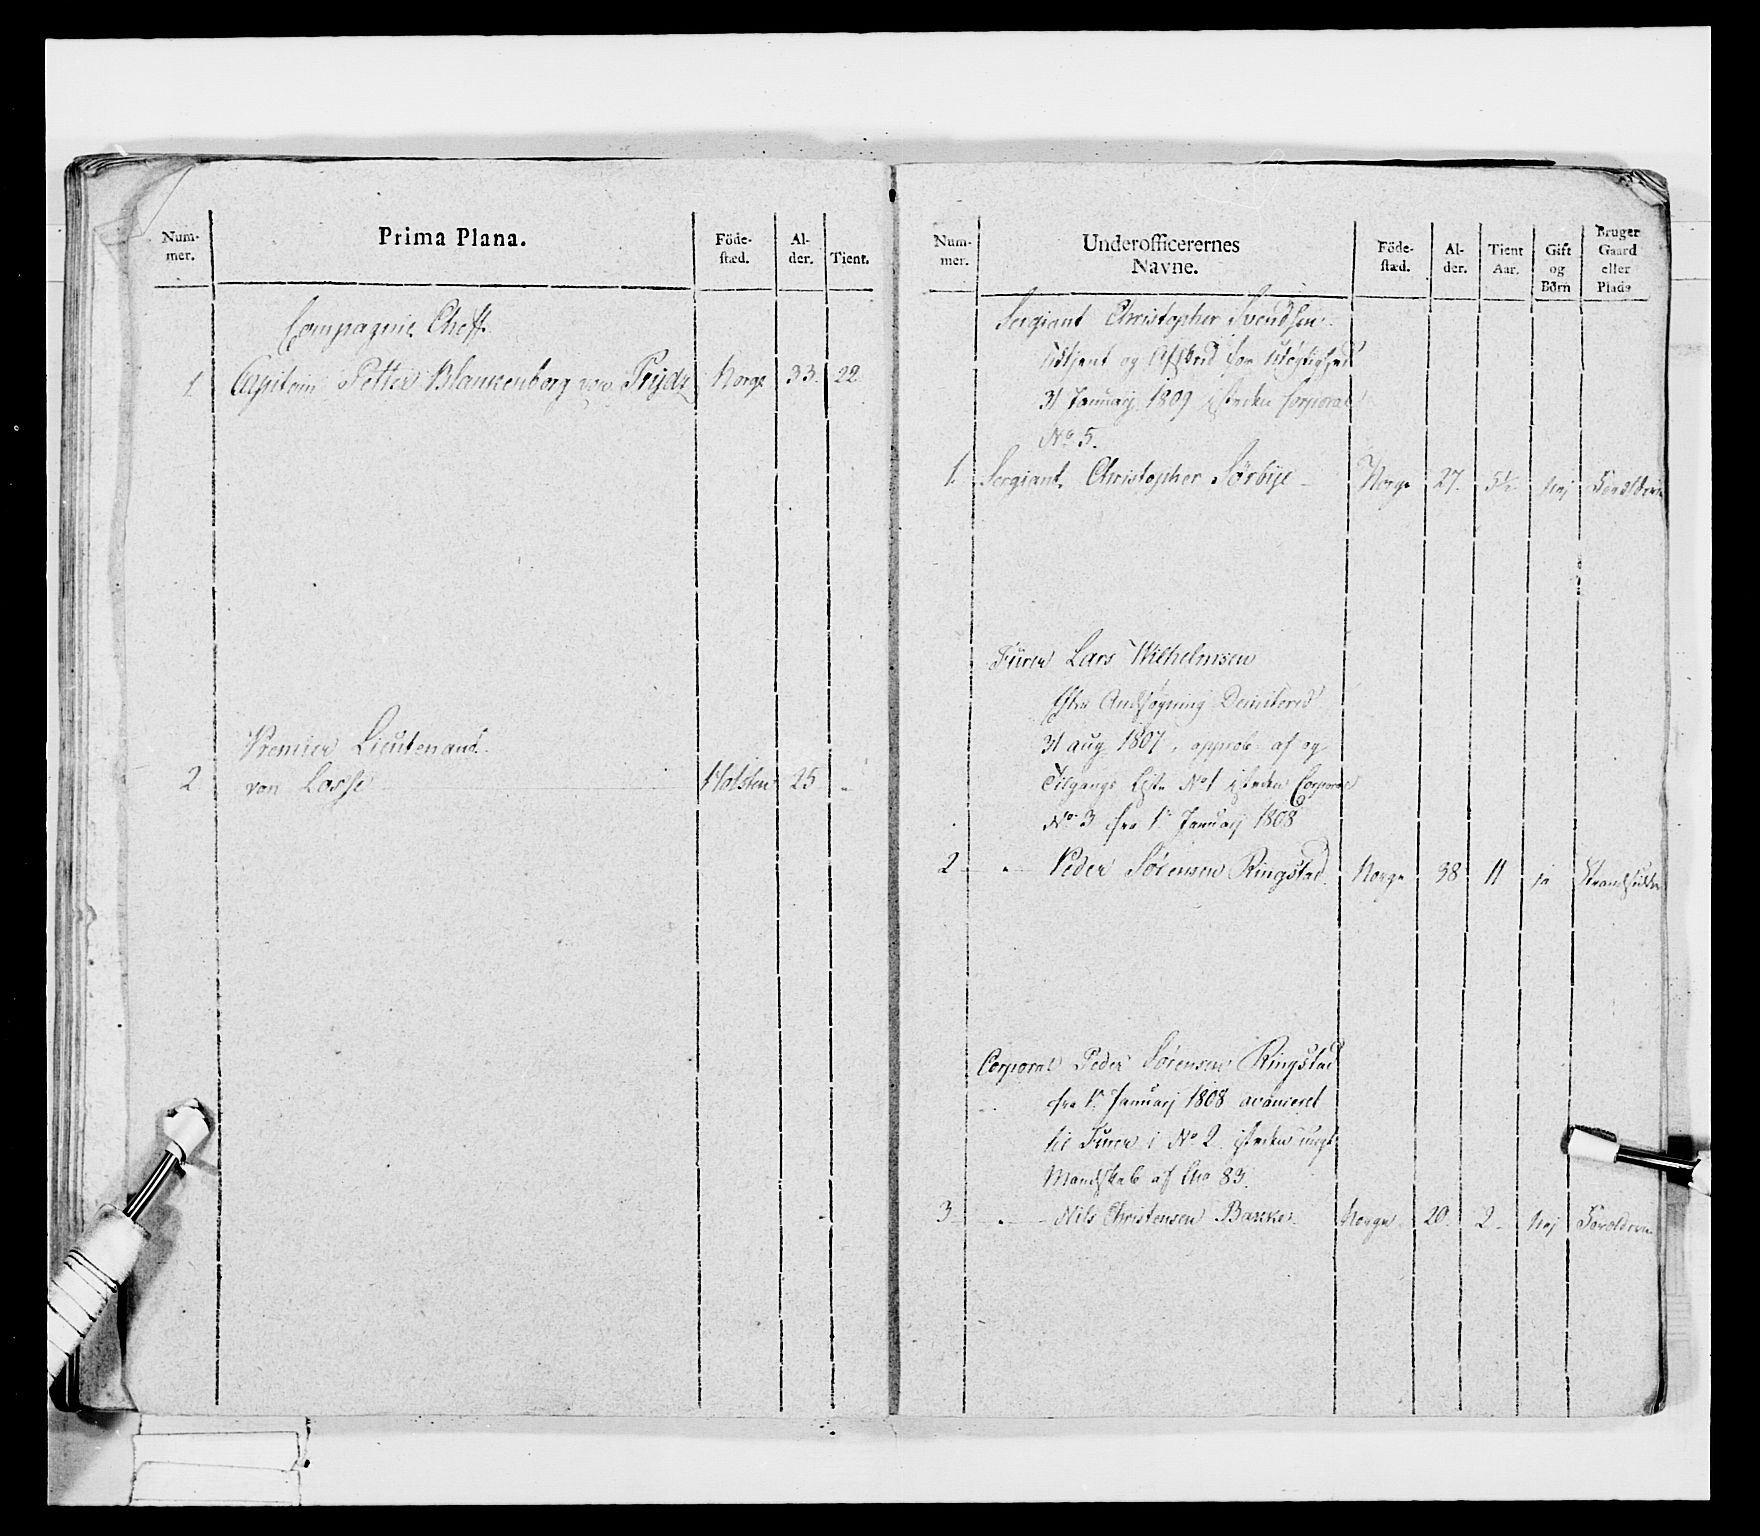 Num-
mer.
Prima Plana.
Föde-
stæd.
Al-
der.
Tient.
Compagnie Cheff.
1. Capitain Petter Blankenborg von Prydz Norge 33. 22
Premier Lieutenand.
2 von Losse Holsten 25 "
Num-
mer.
Underofficerernes
Navne.
Föde-
stæd.
Al-
der.
Tient
Aar.
Gift
og
Börn
Bruger
Gaard
eller
Plads
Sergiant Christopher Svendsen
Udtjent og Afskeed for
31 Januarj 1809 isteden Corporal
No 5.
1. Sergiant Christopher Sörbye Norge 27. 5½ Nej Forældrene
Furer Lars Wilhelmsen
efter Ansøgning Demitered
31 aug 1807, approb. af og
Tilgangs Liste No 1 isteden Corporal
No 3 fra 1te Januarj 1808
2 " Peder Sörensen Ringstad. Norge 38 11 ja
Corporal Peder Sörensen Ringstad
fra 1te Januarj 1808 avanceret
til Furer i No 2 isteden ungt
Mandskab af No 83.
3 " Nils Christensen Bakke Norge 20. 2 Nej Forældrene